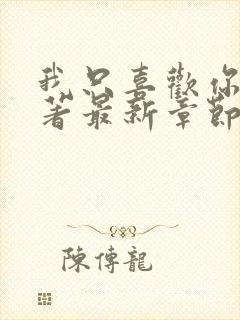 我只喜歡你
著最新章節
陳傳龍